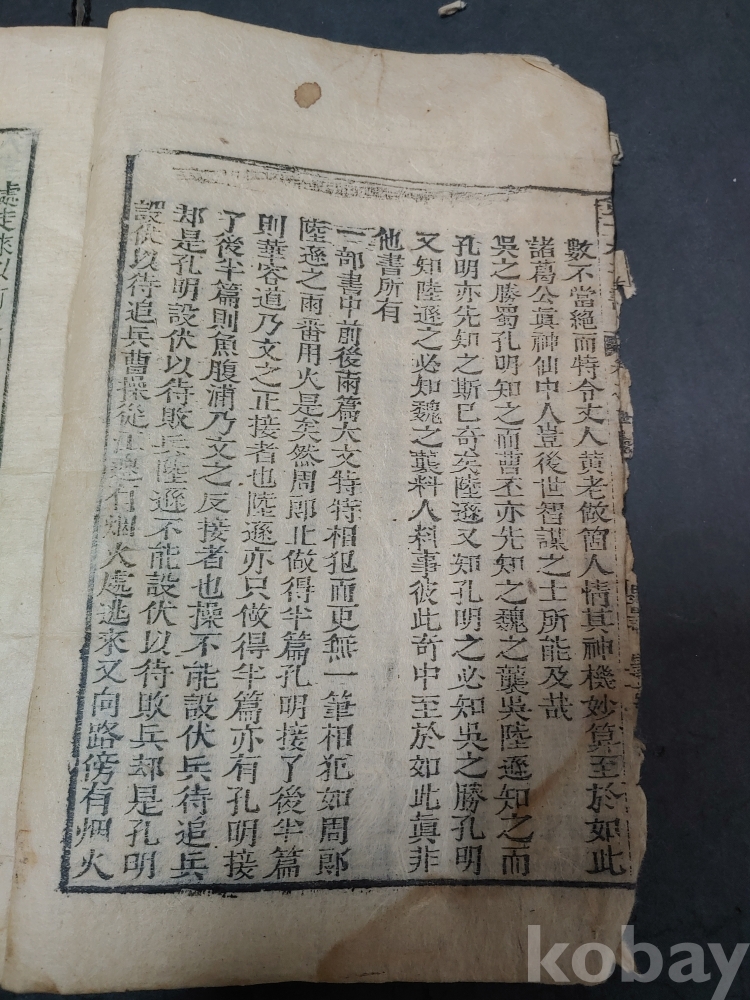 數不當絕而特令丈人黃老做箇人情其神機妙算至於如此
諸葛公眞神仙中人豈後世智謀之士所能及哉
吳之勝蜀孔明知之而曹丕亦先知之魏之襲吳陸遜知之而
孔明亦先知之斯已奇矣陸遜又知孔明之必知吳之勝孔明
又知陸遜之必知魏之襲料人料事彼此奇中至於如此眞非
他書所有
一部書中前後兩篇大文特特相犯而更無一筆相犯如周郎
陸遜之兩番用火是矣然周郎止做得半篇孔明接了後半篇
則華容道乃文之正接者也陸遜亦只做得半篇亦有孔明接
了後半篇則魚腹浦乃文之反接者也操不能設伏兵待追兵
却是孔明設伏以待敗兵陸遜不能設伏以待敗兵却是孔明
設伏以待追兵曹操從有烟火處逃來又向路傍有烟火
kobay